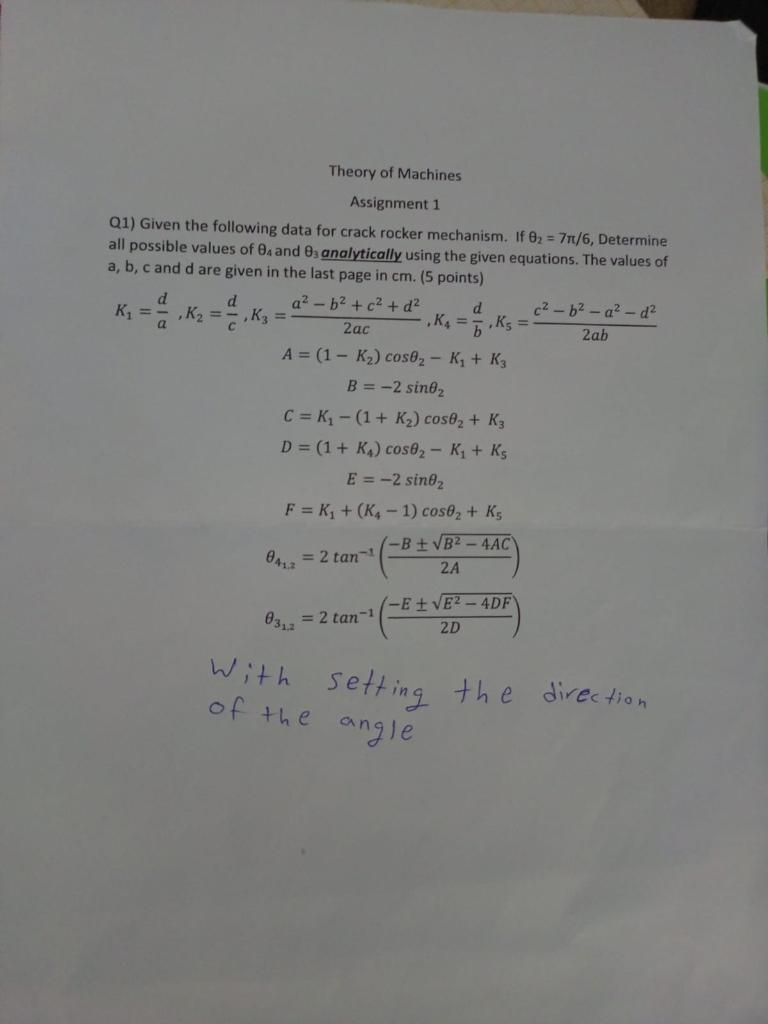 Theory of Machines
Assignment 1
Q1) Given the following data for crack rocker mechanism. If θ₂ = 7π/6, Determine
all possible values of θ₄ and θ₃ analytically using the given equations. The values of
a, b, c and d are given in the last page in cm. (5 points)
K₁ = d/a , K₂ = d/c , K₃ = (a² − b² + c² + d²)/2ac , K₄ = d/b , K₅ = (c² − b² − a² − d²)/2ab
A = (1 − K₂) cosθ₂ − K₁ + K₃
B = −2 sinθ₂
C = K₁ − (1 + K₂) cosθ₂ + K₃
D = (1 + K₄) cosθ₂ − K₁ + K₅
E = −2 sinθ₂
F = K₁ + (K₄ − 1) cosθ₂ + K₅
θ₄₁,₂ = 2 tan⁻¹ ((−B ± √(B² − 4AC))/2A)
θ₃₁,₂ = 2 tan⁻¹ ((−E ± √(E² − 4DF))/2D)
With setting the direction
of the angle